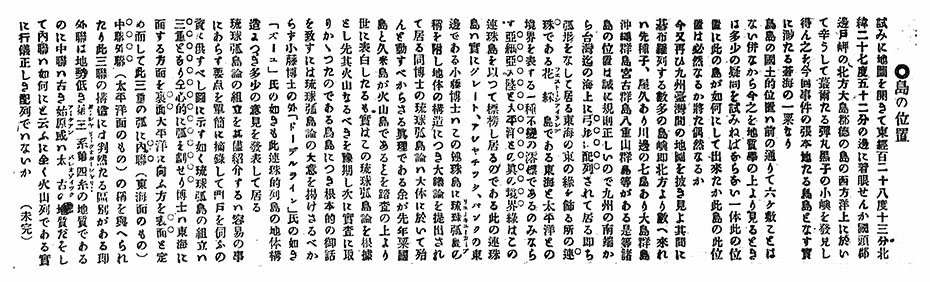 ◎島の位置
試みに地圖を開きて東經百二十八度十三分北
緯二十七度五十二分の邊に習眼せんか國頭郡
邊戸岬の北方大島郡徳の島の西方洋上に於い
て辛うして蕞爾たる彈丸黑子の小嶼を發見し
得ん之を今回渡件の張本地たる鳥島となす實
に渺たる蒼海の一粟なり
鳥島の國土的位置は前の通りて六ヶ敷ことは
ない併ながら今之を地質學の上より見るとき
は多少の疑問を試みねばならぬ一体此の位
置に此の島が如何にして出來たか此島の此位
置は必然なるか將た偶然なるか
今又再び九州臺灣間の地圖を披き見よ其間に
碁布羅列する數多の島嶼即北方より數へ來れ
い先種子、屋久あり川邊の七島あり大島群島
沖繩群島宮古群島八重山群島等がある是等諸
島の位置は誠に規則正しいもので九州の南端か
ら台灣迄の海上に弓形に配列されて居る即ち
弧形をなして居る東海の東の緣を飾る所の連
珠である花 綵 である東海と太平洋との
境界を表はする一種不變の澪標であるのみなら
す亞細亞大陸と太平洋との眞の境界線はこの
島い實にグレート、アレヤチック、バンクの東
連珠島を以つて標榜し居るのである此の連珠
邊である小藤博士いこの連珠島に琉球弧島の
稱を附し地体の構造につき大緒論を提出され
て居る同博士の緒論い大体に於いて殆
んと動すべからさる眞理である余が先年粟國
島と久米島が火山島であることを踏査の上より
世に表白したるも實はこの琉球弧島論を根據
とし先其火山なるべきを豫期し次に實査に取
りかゝつたのである鳥島につき根本的の御話
を致すには琉球弧島論の大意を掲げさるべか
らず小藤博士の外「ドーデルライン」氏の如き
「ズース」氏の如きも此連珠的列島の地体構
造につき多少の意見を發表して居る
琉球弧島論の組立を其儘紹介するい容易の事
にあらす要点を單簡に摘錄して門戸を伺ふの
資に供すべし圖に示す如く琉球弧島の組立い
三重となり空心的に弧を劃せり博士い東海に
面する方面を裏面太平洋に向ふ方を表面と定
め而して此三重の弧に內聯（東海面のもの）
中聯外聯（太平洋面のもの）の稱を與へられ
たり此三聯の構造には判然たる區別がある即
外聯は地勢低き第三 系第四系の地質である
のに中聯い古き始原或い太 古の地質をし
て內聯い如何にと云ふに全く火山列である實
に行儀正しき配列でいないか　（未完）